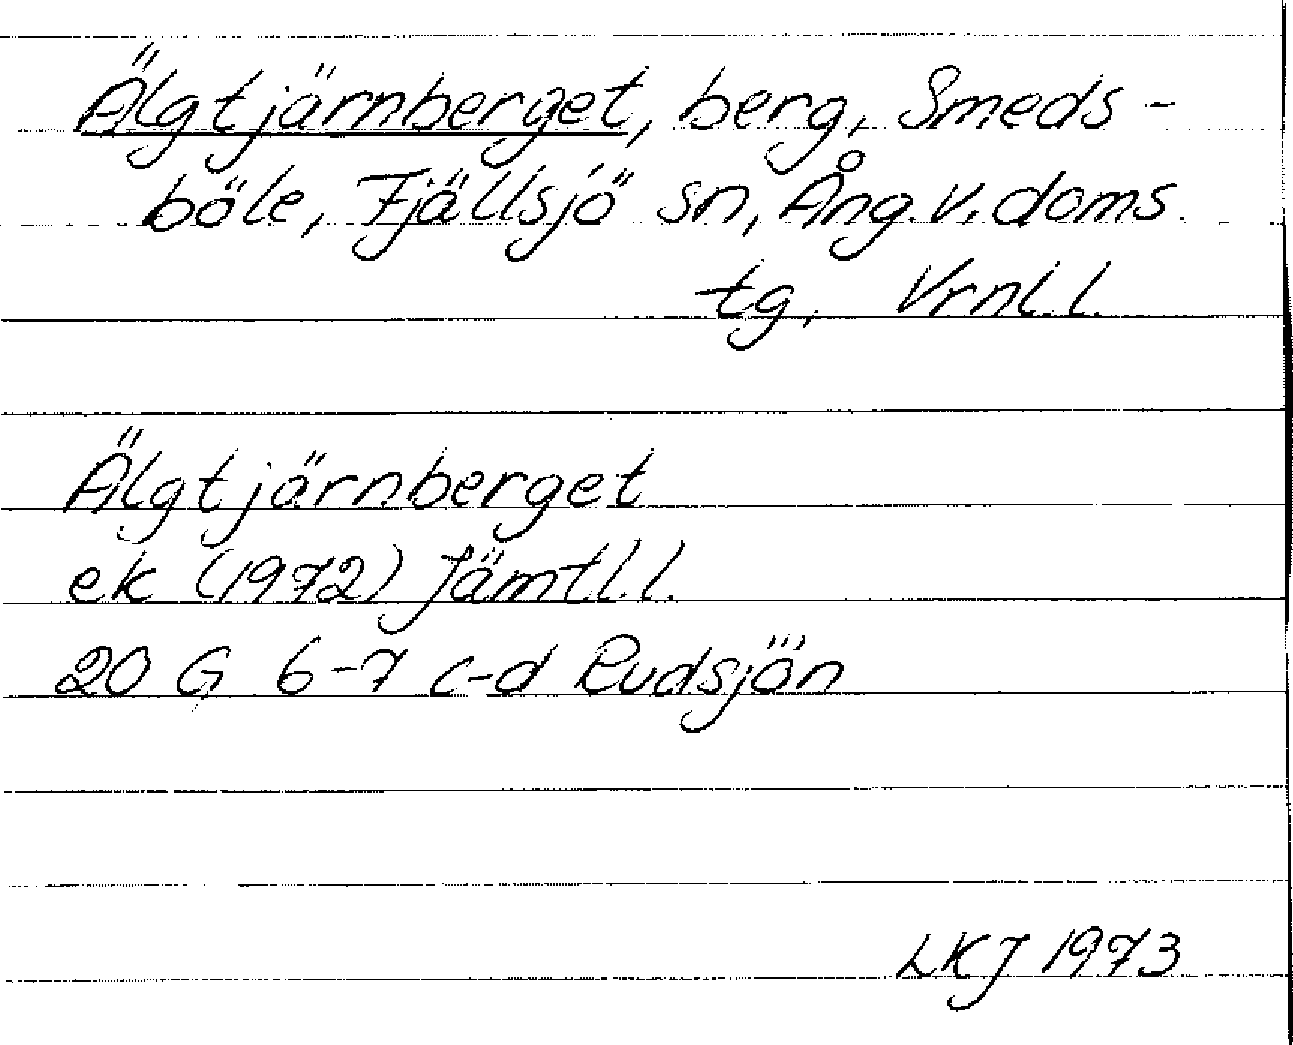 Älgtjärnberget, berg, Smeds-
böle, Fjällsjö sn, Ång.v.doms
tg, Vrnl.l.
Älgtjärnberget
ek (1972) Jämtl.l.
20 G 6-7 c-d Rudsjön
LKJ 1973